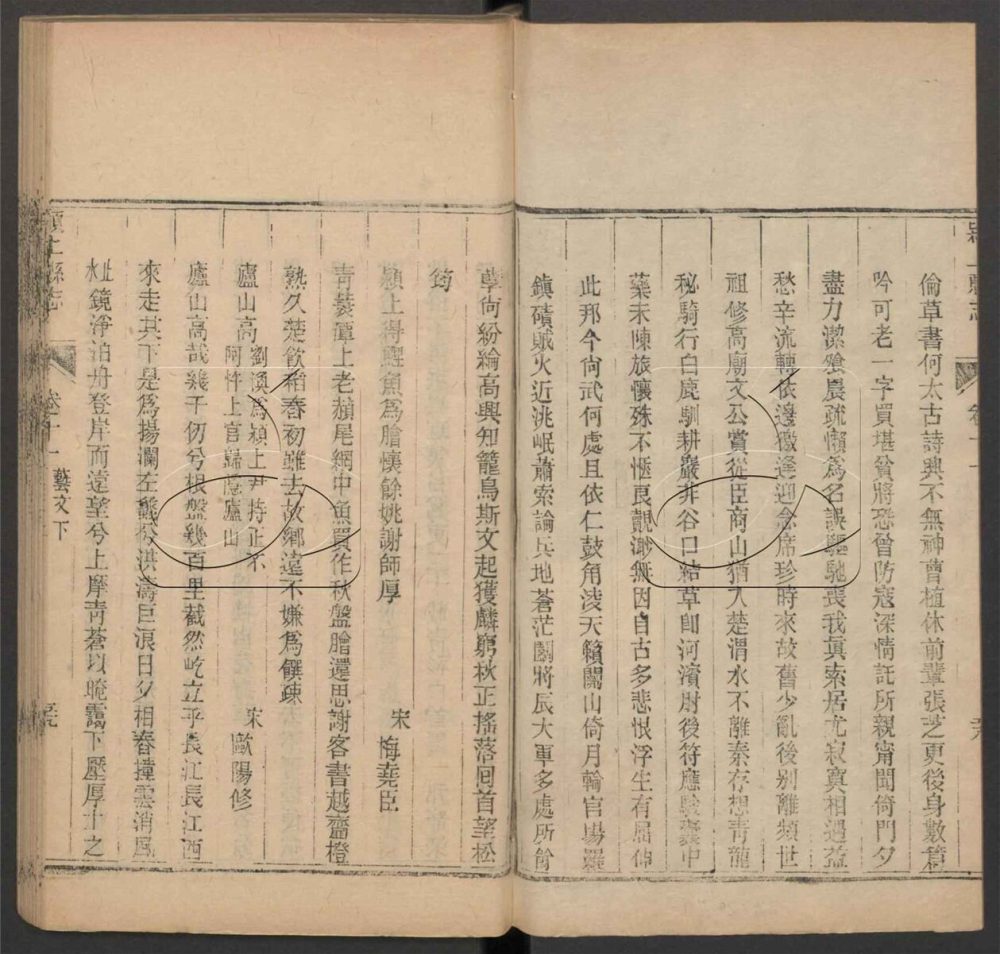 倫草書何太古詩興不無神曹植休前輩張芝更後身數篇
吟可老一字買堪貧將恐曾防寇深情託所親甯聞倚門夕
盡力潔飧晨疏懶爲名誤驅馳喪我真索居尤寂寞相遇益
愁辛流轉依邊徼逢迎念席珍時來故舊少亂後別離頻世
祖修高廟文公賞從臣商山猶入楚渭水不離秦存想青龍
秘騎行白鹿馴耕巖非谷口結草即河濱肘後符應驗囊中
藥未陳旅懷殊不愜良覿渺無因自古多悲恨浮生有屈伸
此邦今尚武何處且依仁鼓角淩天籟關山倚月輪官場羅
鎮磧賊火近洮岷蕭索論兵地蒼茫鬬將辰大軍多處所餘
孽尙紛綸高興知籠鳥斯文起獲麟窮秋正搖落囘首望松
筠
潁上得鯉魚爲膾懷餘姚謝師厚
宋 梅堯臣
青蓑潭上老赬尾網中魚買作秋盤膾還思謝客書越虀橙
熟久楚飲稻舂初雖去故鄉遠不嫌爲饌疎
廬山高 劉渙爲潁上尹持正不
阿忤上官歸隱廬山
宋 歐陽修
廬山高哉幾千仞兮根盤幾百里截然屹立乎長江長江西
來走其下是爲揚瀾左蠡兮洪濤巨浪日夕相舂撞雲消風
止水鏡淨泊舟登岸而遠望兮上摩青蒼以晻靄下壓厚土之
潁上縣志
卷十一
藝文下